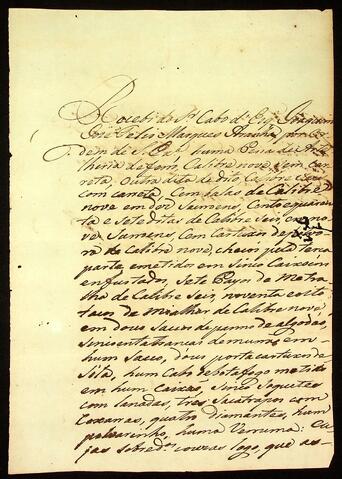 Recebi do Sr. Cabo d'Esq. Joaquim
José Felis Marques por Or
dem de S. huma Pessa de Arti
lharia de ferro, Calibre nove, sem car
reta, outra dita de dito Calibre seis
com carreta, Cem balas de Calibre
nove em dos Surroens, Cento e quaren
ta e sete ditas de Calibre seis, em no
ve Surroens, Cem Cartuxos de
de Calibre nove, cheios pela terça
parte, emetidos em sinco Caixoens
enfustados, sete Payos de Metra
lha de Calibre seis, noventa e oito
tacos de mialhar de Calibre nove
em dous Sacos de panno de algodão,
sincoenta lanças de em
hum Saco, dous porta cartuxos de
Sola, hum Cabo de botafogo metido
em hum Caixão, sinco Soquetes
com lanadas, tres Sacatrapos com
Cocarras, quatro diamantes, hum
polvarinho, huma Verruma: cu
jas sobreds. couzas logo, que as-